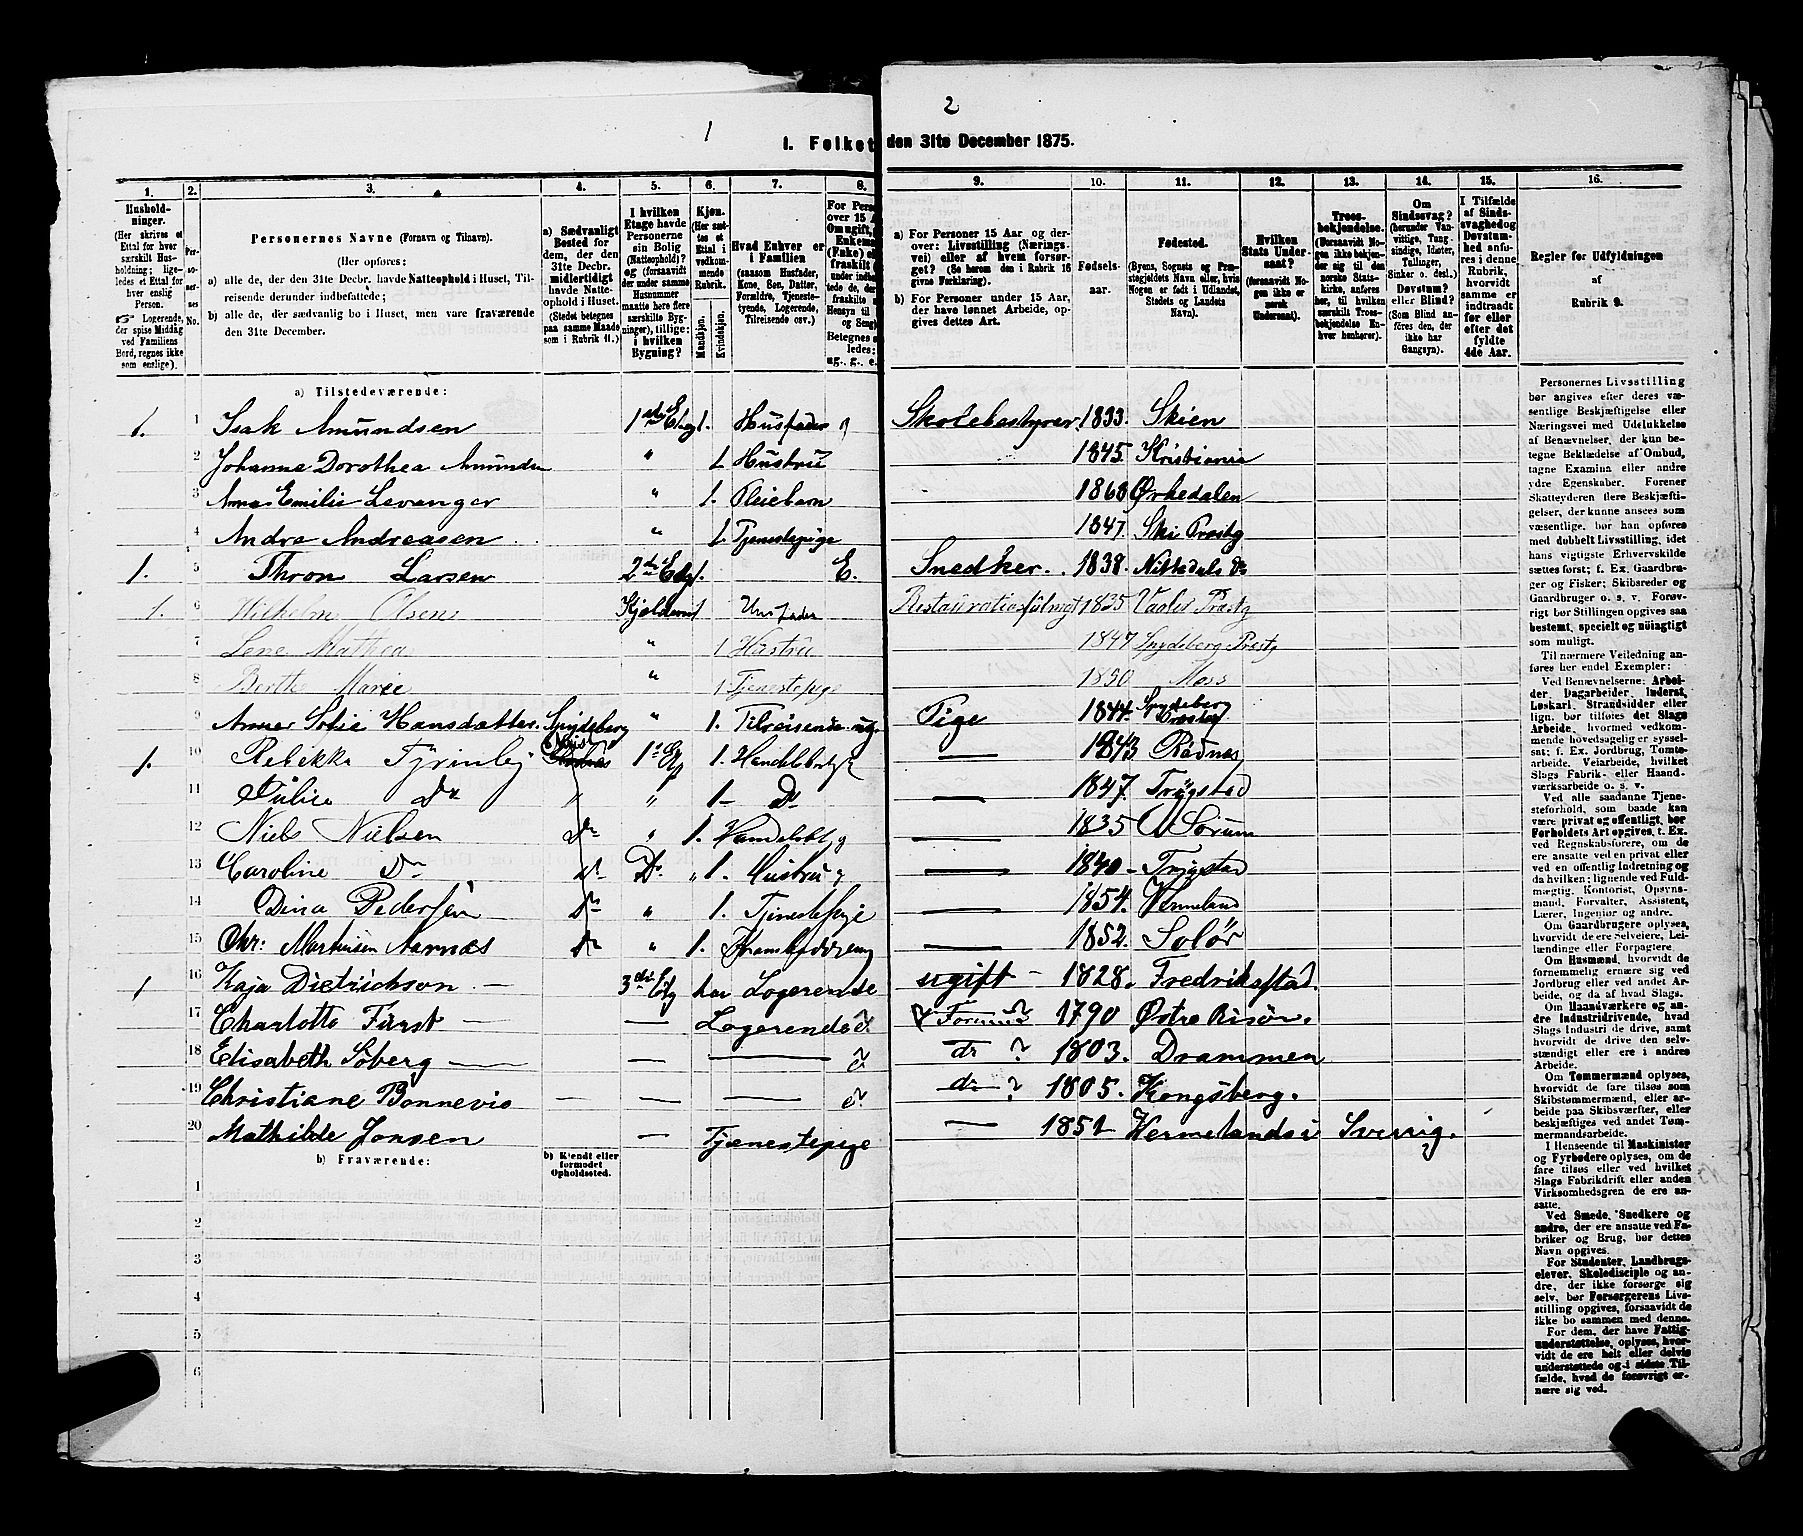 1
2
I. Folket den 31te December 1875.
1. 2. 3. 4. 5. 6. 7. 8. 9. 10. 11. 12. 13. 14. 15. 16.
Husholdninger.
(Her skrives et Ettal for hver særskilt Husholdning; ligeledes for hver enslig Person.
Logerende, der spise Middag ved Familiens Bord, regnes ikke som enslige).
Personernes No.
Personernes Navne (Fornavn og Tilnavn).
(Her opføres:
a) alle de, der den 31te Decbr. havde Natteophold i Huset, Tilreisende derunder indbefattede;
b) alle de, der sædvanlig bo i Huset, men vare fraværende den 31te December.
a) Sædvanligt Bosted for dem, der den 31te Decbr. midlertidigt havde Natteophold i Huset. (Stedet betegnes paa samme Maade som i Rubrik 11.)
I hvilken Etage havde Personerne sin Bolig (Natteophold)? og (forsaavidt der under samme Husnummer maatte høre flere særskilte Bygninger), tillige: i hvilken Bygning?
Kjøn. (Her sættes et Ettal i vedkommende Rubrik.
Mandkjøn. Kvindekjøn.
Hvad Enhver er i Familien
(saasom Husfader, Kone, Søn, Datter, Forældre, Tjenestetyende, Logerende, Tilreisende osv.)
a) For Personer 15 Aar og derover: Livsstilling (Næringsvei) eller af hvem forsørget? (Se herom den i Rubrik 16 givne Forklaring).
b) For Personer under 15 Aar, der have lønnet Arbeide, opgives dettes Art.
Fødselsaar.
Fødested.
(Byens, Sognets og Præstegjeldets Navn eller, hvis Nogen er født i Udlandet, Stedets og Landets Navn).
Hvilken Stats Undersaat?
(forsaavidt Nogen ikke er norsk Undersaat).
Troesbekjendelse.
(Forsaavidt Nogen ikke bekjender sig til den norske Statskirke, anføres her, til hvilken særskilt Troesbekjendelse Enhver henhører).
Om Sindssvag?
(herunder Vanvittige, Tungsindige, Idioter, Tullinger, Sinker o. desl.)
Døvstum? eller Blind?
(Som Blind anføres den, der ikke har Gangsyn).
I Tilfælde af Sindssvaghed og Døvstumhed anføres i denne Rubrik, hvorvidt samme er indtraadt før eller efter det fyldte 4de Aar.
Regler for Udfyldningen af Rubrik 9.
a) Tilstedeværende:
1. 1 Isak Amundsen 1ste Etg. 1. Husfader g Skolebestyrer. 1833. Skien
2 Johanne Dorothea Amunden " 1 Hustru 1845. Kristiania
3 Anna Emilie Levanger " 1. Pleiebarn 1868 Ørkedalen
4 Andra Andreasen " 1 Tjenestepige 1847. Ski Præstg
1. 5 Thron Larsen 2den Etg. 1. E. Snedker. 1838. Nittedals do
1. 6 Wilhelm Olsen Kjelderen 1 Husfader 1835 Vaaler Præstg
7 Lene Mathea " 1 Hustru 1847 Spydeberg Præstg
8 Berthe Marie " 1 Tjenestepige 1850 Moss
9 Anner Sofie Hansdatter. Spydeberg " 1. Tilreisende ug. Pige 1844. Spydeberg Præstg
1. 10 Rebekka 1ste Etg 1. 1843 Rødnes
11 Julie Do " " 1 Do 1847. Trygstad
12 Niels Nielsen Do " 1. 1835 Sørum
13 Caroline Do Do Do " 1. Hustru g 1840 Trygstad
14 Dina Pedersen Do " 1. Tjenestepige 1854. Vermeland
15 Chr: Martinsen Aarnæs Do " 1. 1852. Solør
1 16 Kaja Dietrichson 3die Etg Logerende ugift 1828. Fredrikstad.
17 Charlotte Fürst Logerende 1790 Østre Risør.
18 Elisabeth Söberg dr ? 1803. Drammen
19 Christiane Bonnevie dr ? 1805. Kongsberg.
20 Mathilde Jonsen Tjenestepige 1851 Vermelands i Sverrig.
b) Fraværende:
b) Kjendt eller formodet Opholdssted.
1
2
3
4
5
6
Personernes Livsstilling bør angives efter deres væsentlige Beskjæftigelse eller Næringsvei med Udelukkelse af Benævnelser, der kun betegne Beklædelse af Ombud, tagne Examina eller andre ydre Egenskaber. Forener Skatteyderen flere Beskjæftigelser, der kunne ansees som væsentlige, bør han opføres med dobbelt Livsstilling, idet hans vigtigste Erhvervskilde sættes først; f. Ex. Gaardbruger og Fisker; Skibsreder og Gaardbruger o. s. v. Forøvrigt bør Stillingen opgives saa bestemt, specielt og nöiagtigt som muligt.
Til nærmere Veiledning anføres her endel Exempler:
Ved Benævnelserne: Arbeider, Dagarbeider, Inderst, Løskarl, Strandsidder eller lign. bør tilføies det Slags Arbeide, hvormed vedkommende hovedsagelig er sysselsat; f. Ex. Jordbrug, Tomtearbeide, Veiarbeide, hvilket Slags Fabrik- eller Haandværksarbeide o. s. v.
Ved alle saadanne Tjenesteforhold, som baade kan være privat og offentligt, bør Forholdets Art opgives, t. Ex. ved Regnskabsførere, om de ere ansatte ved en privat eller ved en offentlig Indretning og da hvilken; lignende ved Fuldmægtig, Kontorist, Opsynsmand, Forvalter, Assistent, Lærer, Ingeniør og andre.
Om Gaardbrugere oplyses, hvorvidt de ere Selveiere, Leilændinge eller Forpagtere.
Om Husmænd, hvorvidt de fornemmelig ernære sig ved Jordbrug eller ved andet Arbeide, og da af hvad Slags.
Om Haandværkere og andre Industridrivende, hvad Slags Industri de drive, samt hvorvidt de drive den selvstændigt eller ere i andres Arbeide.
Om Tømmermænd oplyses, hvorvidt de fare tilsøs som Skibstømmermænd, eller arbeide paa Skibsværfter, eller beskjæftiges ved andet Tømmermandsarbeide.
I Henseende til Maskinister og Fyrbødere oplyses, om de fare tilsøs eller ved hvilket Slags Fabrikdrift eller anden Virksomhedsgren de ere ansatte.
Ved Smede, Snedkere og andre, der ere ansatte ved Fabriker og Brug, bør dettes Navn opgives.
For Studenter, Landbrugselever, Skoledisciple og andre, der ikke forsørge sig selv, bør Forsørgerens Livsstilling opgives, forsaavidt de ikke bo sammen med denne.
For dem, der have Fattigunderstøttelse, oplyses, hvorvidt de ere helt eller delvis understøttede og i sidste Tilfælde, hvad de forøvrigt ernære sig ved.